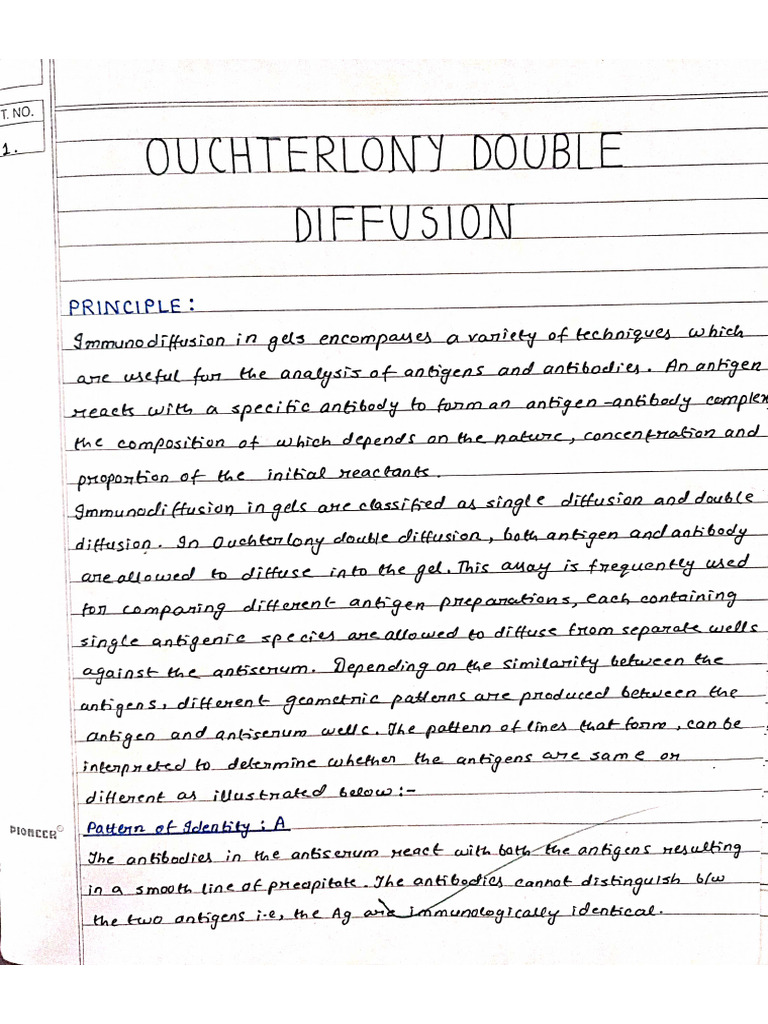 T. NO.
1.
OUCHTERLONY DOUBLE
DIFFUSION
PRINCIPLE:
Immunodiffusion in gels encompasses a variety of techniques which
are useful for the analysis of antigens and antibodies. An antigen
reacts with a specific antibody to form an antigen-antibody complex
the composition of which depends on the nature, concentration and
proportion of the initial reactants.
Immunodiffusion in gels are classified as single diffusion and double
diffusion. In Ouchterlony double diffusion, both antigen and antibody
are allowed to diffuse into the gel. This assay is frequently used
for comparing different antigen preparations, each containing
single antigenic species are allowed to diffuse from separate wells
against the antiserum. Depending on the similarity between the
antigens, different geometric patterns are produced between the
antigen and antiserum wells. The pattern of lines that form, can be
interpreted to determine whether the antigens are same or
different as illustrated below:-
PIONEER
Pattern of Identity: A
The antibodies in the antiserum react with both the antigens resulting
in a smooth line of precipitate. The antibodies cannot distinguish b/w
the two antigens i.e, the Ag are immunologically identical.